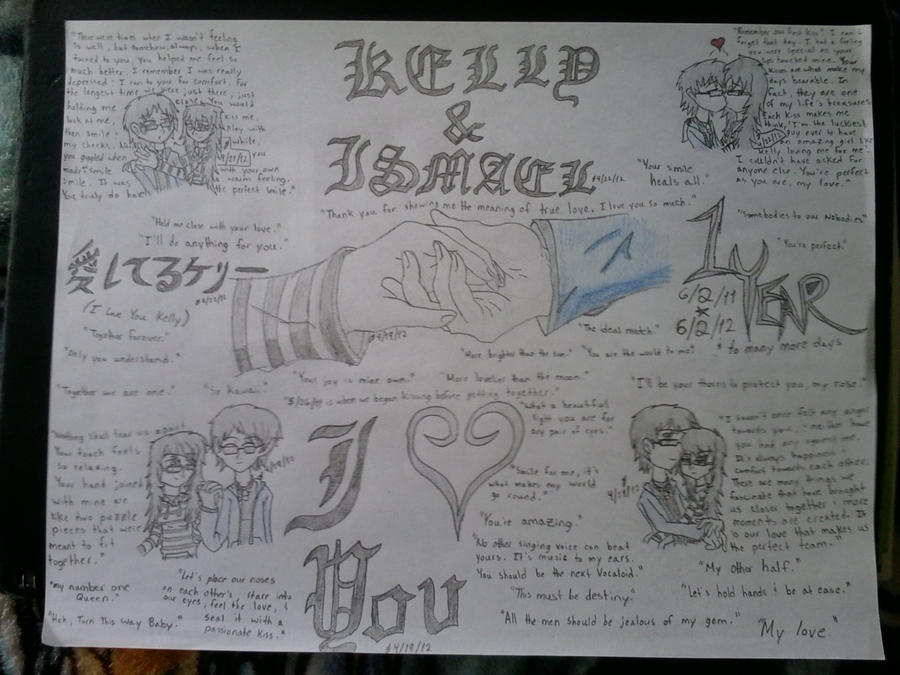 "There were times when I wasn't feeling
so well, but somehow, always, when I
turned to you, you helped me feel so
much better. I remember I was really
depressed. I ran to you for comfort. For
the longest time we were just there, just
holding me closer. You would
look at me, kiss me,
then smile. Play with
my cheeks. while
you giggled when you
made smile with your own
smile. It was warm feeling.
You truly do have the perfect smile."
KELLY
&
ISMAEL
"Thank you for showing me the meaning of true love. I love you so much."
"Remember our first kiss? I can't
forget that day. I had a feeling
you were special as your
lips touched mine. Your
kisses are what make my
days bearable. In
fact, they are one
of my life's treasures.
Each kiss makes me
think, 'I'm the luckiest
guy ever to have
an amazing girl like
Kelly loving me for me.'
I couldn't have asked for
anyone else. You're perfect
as you are, my love."
"Your smile
heals all."
"Hold me close with your love."
"I'll do anything for you."
愛してるケリー
(I Love You Kelly)
"Together forever."
"Only you understand."
"Somebodies to our Nobodies"
"You're perfect"
1 YEAR
6/2/11
6/2/12
to many more days
"The ideal match."
"More brighter than the sun."
"You are the world to me."
"Together we are one."
"So Kawaii."
"Your joy is mine own."
"More lovelier than the moon."
"I'll be your thorns to protect you, my rose."
is when we began kissing before getting together."
"Nothing shall tear us apart.
Your touch feels
so relaxing.
Your hand joined
with mine are
like two puzzle
pieces that were
meant to fit
together."
"My number one
Queen."
"Heh, Turn This Way Baby."
"Let's place our noses
on each other's, stare into
our eyes, feel the love, &
seal it with a
passionate kiss."
I
You
4/19/12
"What a beautiful
light you are for
any pair of eyes."
"Smile for me, it's
what makes my world
go round."
"You're amazing."
"No other singing voice can beat
yours. It's music to my ears.
You should be the next Vocaloid."
"This must be destiny."
"All the men should be jealous of my gem."
"I haven't once felt any anger
towards you. neither have
you had any against me.
It's always happiness &
comfort towards each other.
There are many things we
fascinate that have brought
us closer together & more
moments are created. It
is our love that makes us
the perfect team."
"My other half."
"Let's hold hands & be at ease."
"My love."